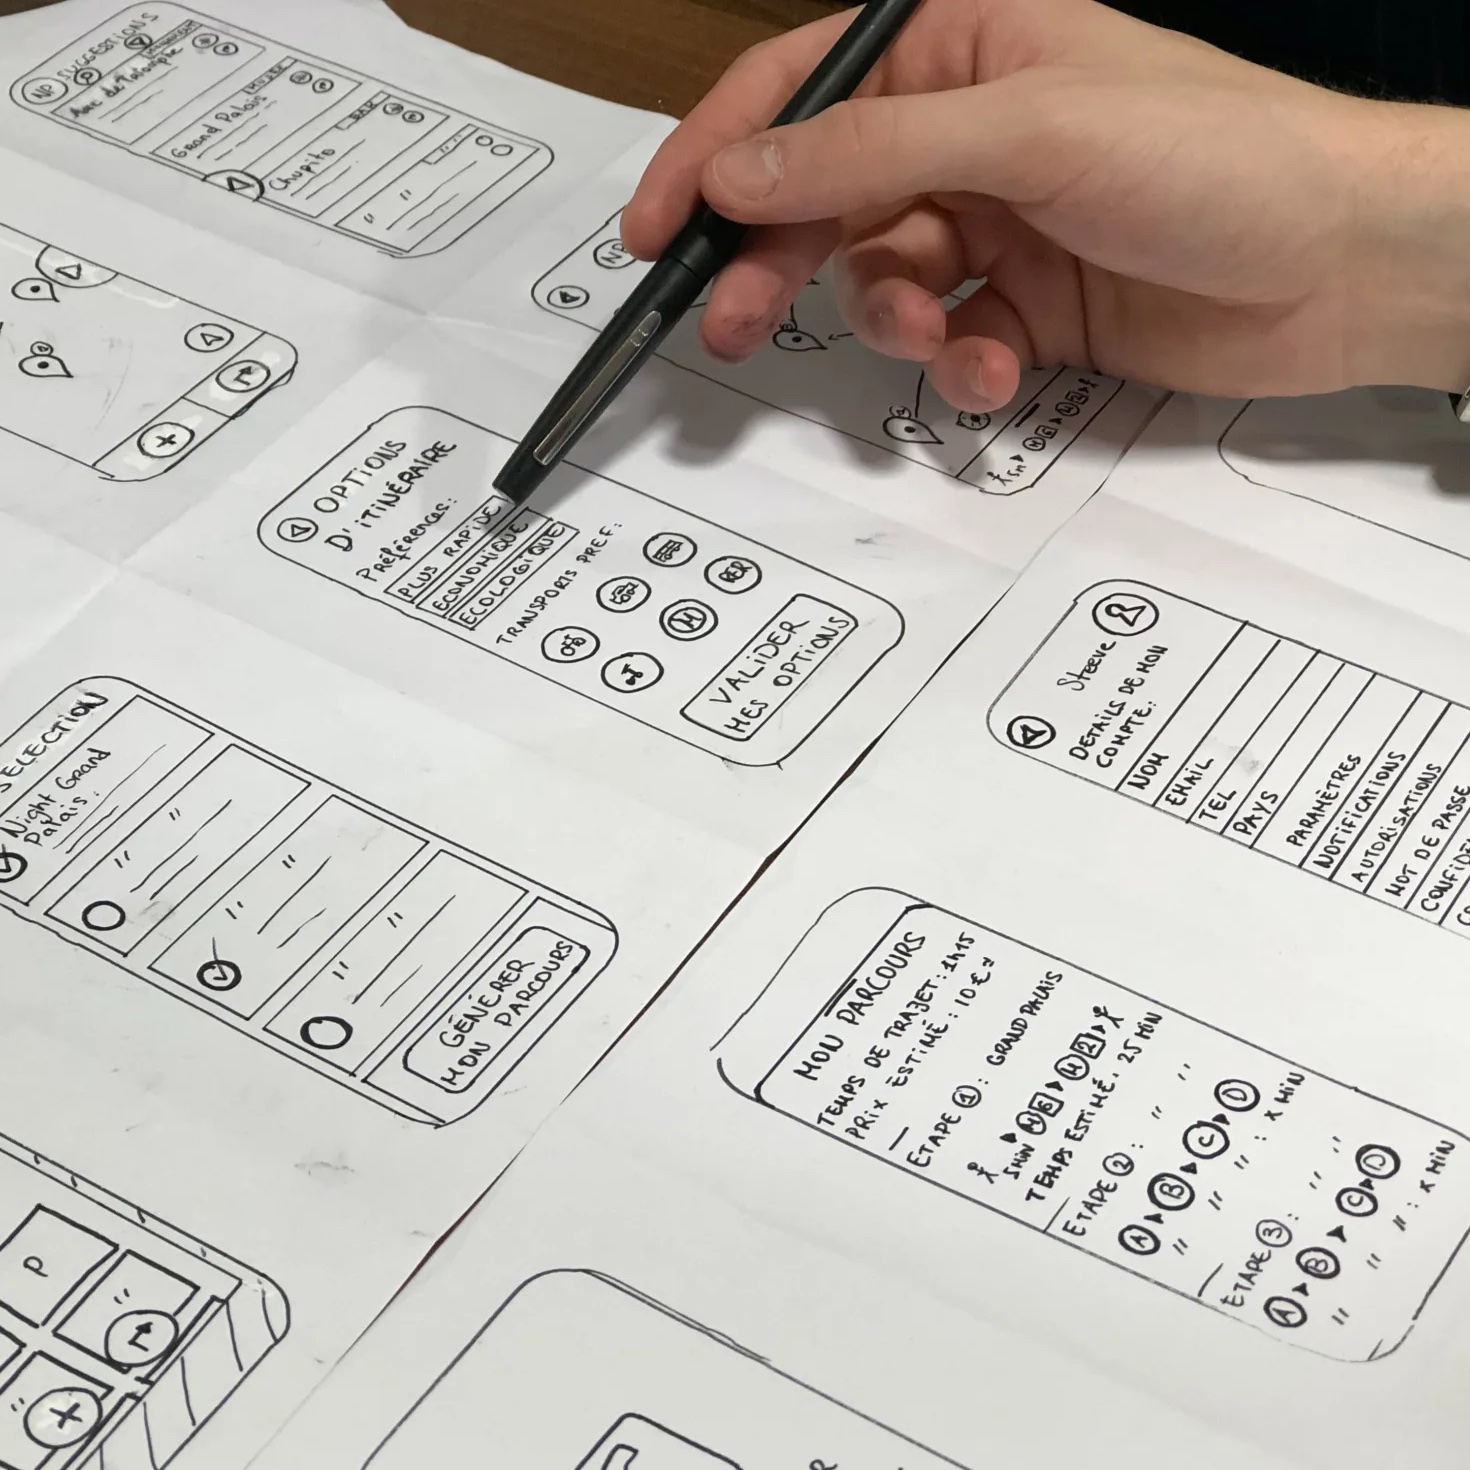 NP
SUGGESTIONS
Arc de Triomphe
Grand Palais
MUSÉE
Chupito
BAR
NP
OPTIONS
D'ITINÉRAIRE
Préférences:
PLUS RAPIDE
ECONOMIQUE
ECOLOGIQUE
TRANSPORTS PREF:
RER
M
VALIDER
MES OPTIONS
SELECTION
Night Grand
Palais:
GÉNÉRER
MON PARCOURS
Steeve
DETAILS DE MON
COMPTE:
NOM
EMAIL
TEL
PAYS
PARAMÈTRES
NOTIFICATIONS
AUTORISATIONS
MOT DE PASSE
MON PARCOURS
TEMPS DE TRAJET: 1H15
PRIX ESTIMÉ: 10 €
ETAPE 1: GRAND PALAIS
5MIN M 6 M 2
TEMPS ESTIMÉ: 25 MIN
ETAPE 2: " "
A B C D
" " " : X MIN
ETAPE 3: " "
A B C D
" " " : X MIN
P